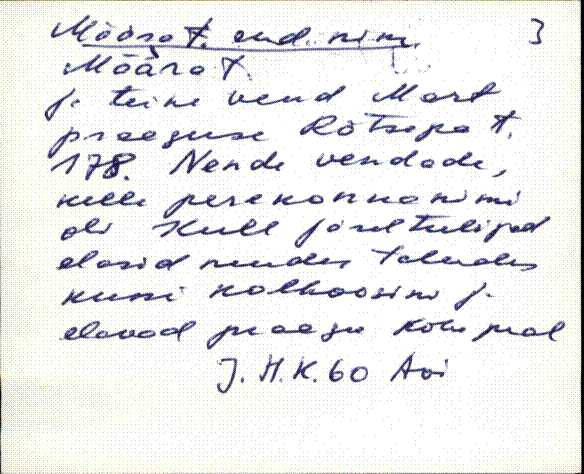 Määrat. end. nim. 3
Määrat
j. teine vend Mart
praeguse Rätsepa t.
178. Nende vendade,
kelle perekonnanimi
oli Kull järeltulijad
elasid nendes taludes
kunni kolhoosini j.
elavad praegu koha peal
J. H. K. 60 Avi